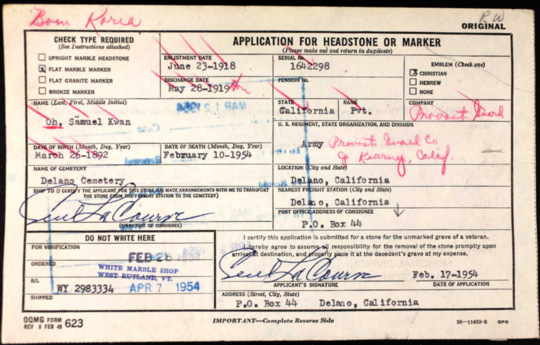 Born Korea
RW
ORIGINAL
CHECK TYPE REQUIRED
(See Instructions attached)
UPRIGHT MARBLE HEADSTONE
X FLAT MARBLE MARKER
FLAT GRANITE MARKER
BRONZE MARKER
APPLICATION FOR HEADSTONE OR MARKER
(Please make out and return in duplicate)
ENLISTMENT DATE
June 23-1918
SERIAL No.
1642298
EMBLEM (Check one)
X CHRISTIAN
HEBREW
NONE
DISCHARGE DATE
May 28-1919 Hon
PENSION No.
NAME (Last, First, Middle Initial)
Oh, Samuel Kwan
STATE
California
RANK
Pvt.
COMPANY
Provost Guard
U. S. REGIMENT, STATE ORGANIZATION, AND DIVISION
Army Provost Guard Co
Kearny, Calif.
DATE OF BIRTH (Month, Day, Year)
March 26-1892
DATE OF DEATH (Month, Day, Year)
February 10-1954
NAME OF CEMETERY
Delano Cemetery
LOCATION (City and State)
Delano, California
SHIP TO (I CERTIFY THE APPLICANT FOR THIS STONE HAS MADE ARRANGEMENTS WITH ME TO TRANSPORT THE STONE FROM THE FREIGHT STATION TO THE CEMETERY)
NEAREST FREIGHT STATION (City and State)
Delano, California
Cecil LaCourse
SIGNATURE OF CONSIGNEE
POST OFFICE ADDRESS OF CONSIGNEE
P.O. Box 44
DO NOT WRITE HERE
FOR VERIFICATION
FEB 26
ORDERED
WHITE MARBLE SHOP
WEST RUTLAND, VT.
B/L
WY 2983334 APR 7 1954
SHIPPED
I certify this application is submitted for a stone for the unmarked grave of a veteran.
I hereby agree to assume all responsibility for the removal of the stone promptly upon arrival at destination, and properly place it at the decedent's grave at my expense.
Cecil LaCourse
Feb. 17-1954
APPLICANT'S SIGNATURE
DATE OF APPLICATION
ADDRESS (Street, City, State)
P.O. Box 44 Delano, California
OQMG FORM
REV 8 FEB 49 623
IMPORTANT—Complete Reverse Side
16—11453-6 GPO